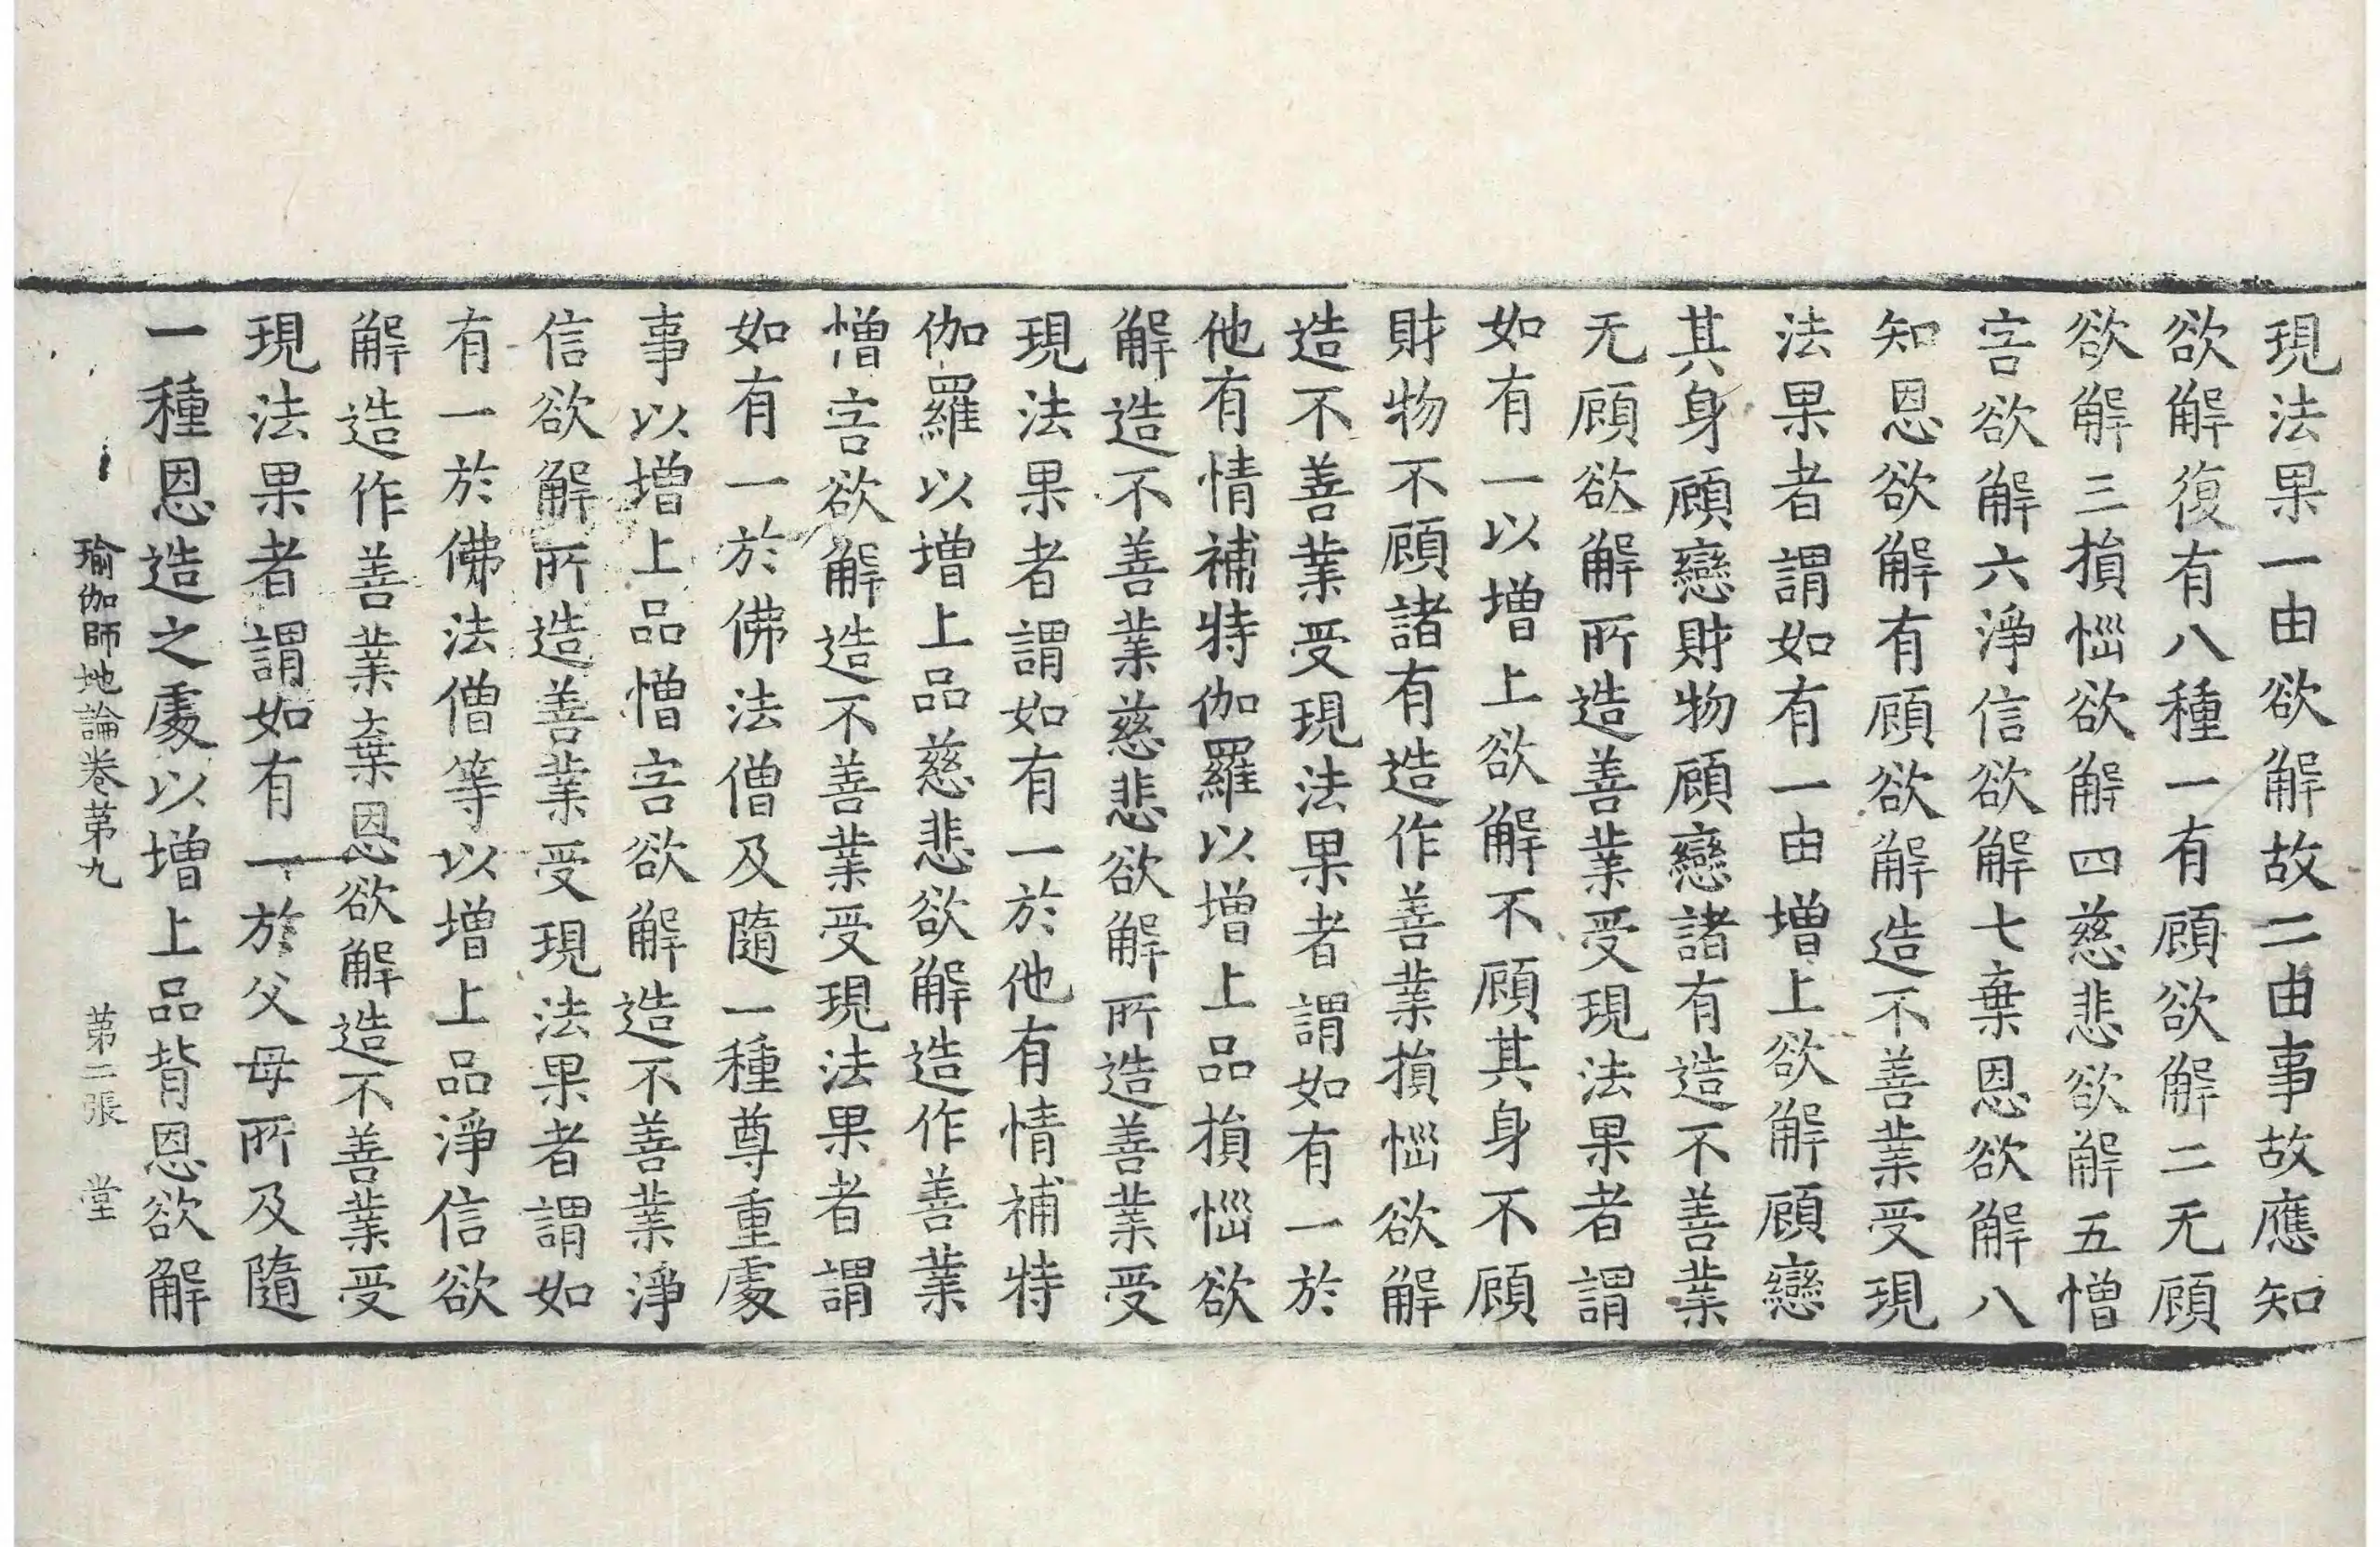 現法果一由欲解故二由事故應知
欲解復有八種一有顧欲解二无顧
欲解三損惱欲解四慈悲欲解五憎
害欲解六淨信欲解七棄恩欲解八
知恩欲解有顧欲解造不善業受現
法果者謂如有一由增上欲解顧戀
其身顧戀財物顧戀諸有造不善業
无顧欲解所造善業受現法果者謂
如有一以增上欲解不顧其身不顧
財物不顧諸有造作善業損惱欲解
造不善業受現法果者謂如有一於
他有情補特伽羅以增上品損惱欲
解造不善業慈悲欲解所造善業受
現法果者謂如有一於他有情補特
伽羅以增上品慈悲欲解造作善業
憎害欲解造不善業受現法果者謂
如有一於佛法僧及隨一種尊重處
事以增上品憎害欲解造不善業淨
信欲解所造善業受現法果者謂如
有一於佛法僧等以增上品淨信欲
解造作善業棄恩欲解造不善業受
現法果者謂如有一於父母所及隨
一種恩造之處以增上品背恩欲解
瑜伽師地論卷第九 第二張 堂